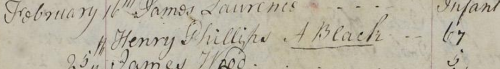 February 16th James Laurence - - - - Infant
" Henry Phillips A Black - - 67
25 " James Wood - - - 5